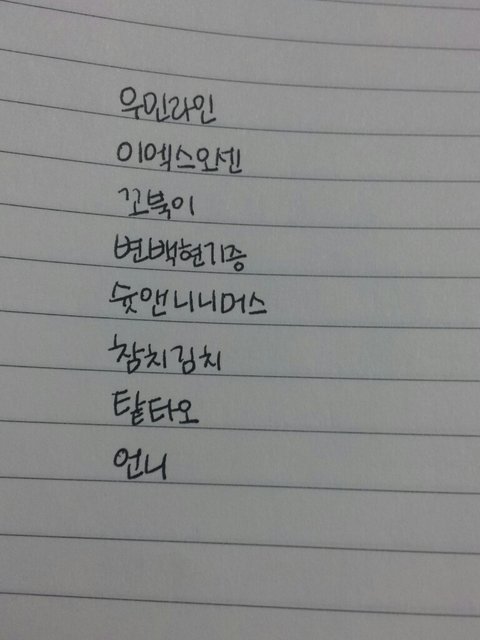 우민라인
이엑스와센
꼬북이
변백현기증
슛앤니니머스
참치김치
탙타오
언니